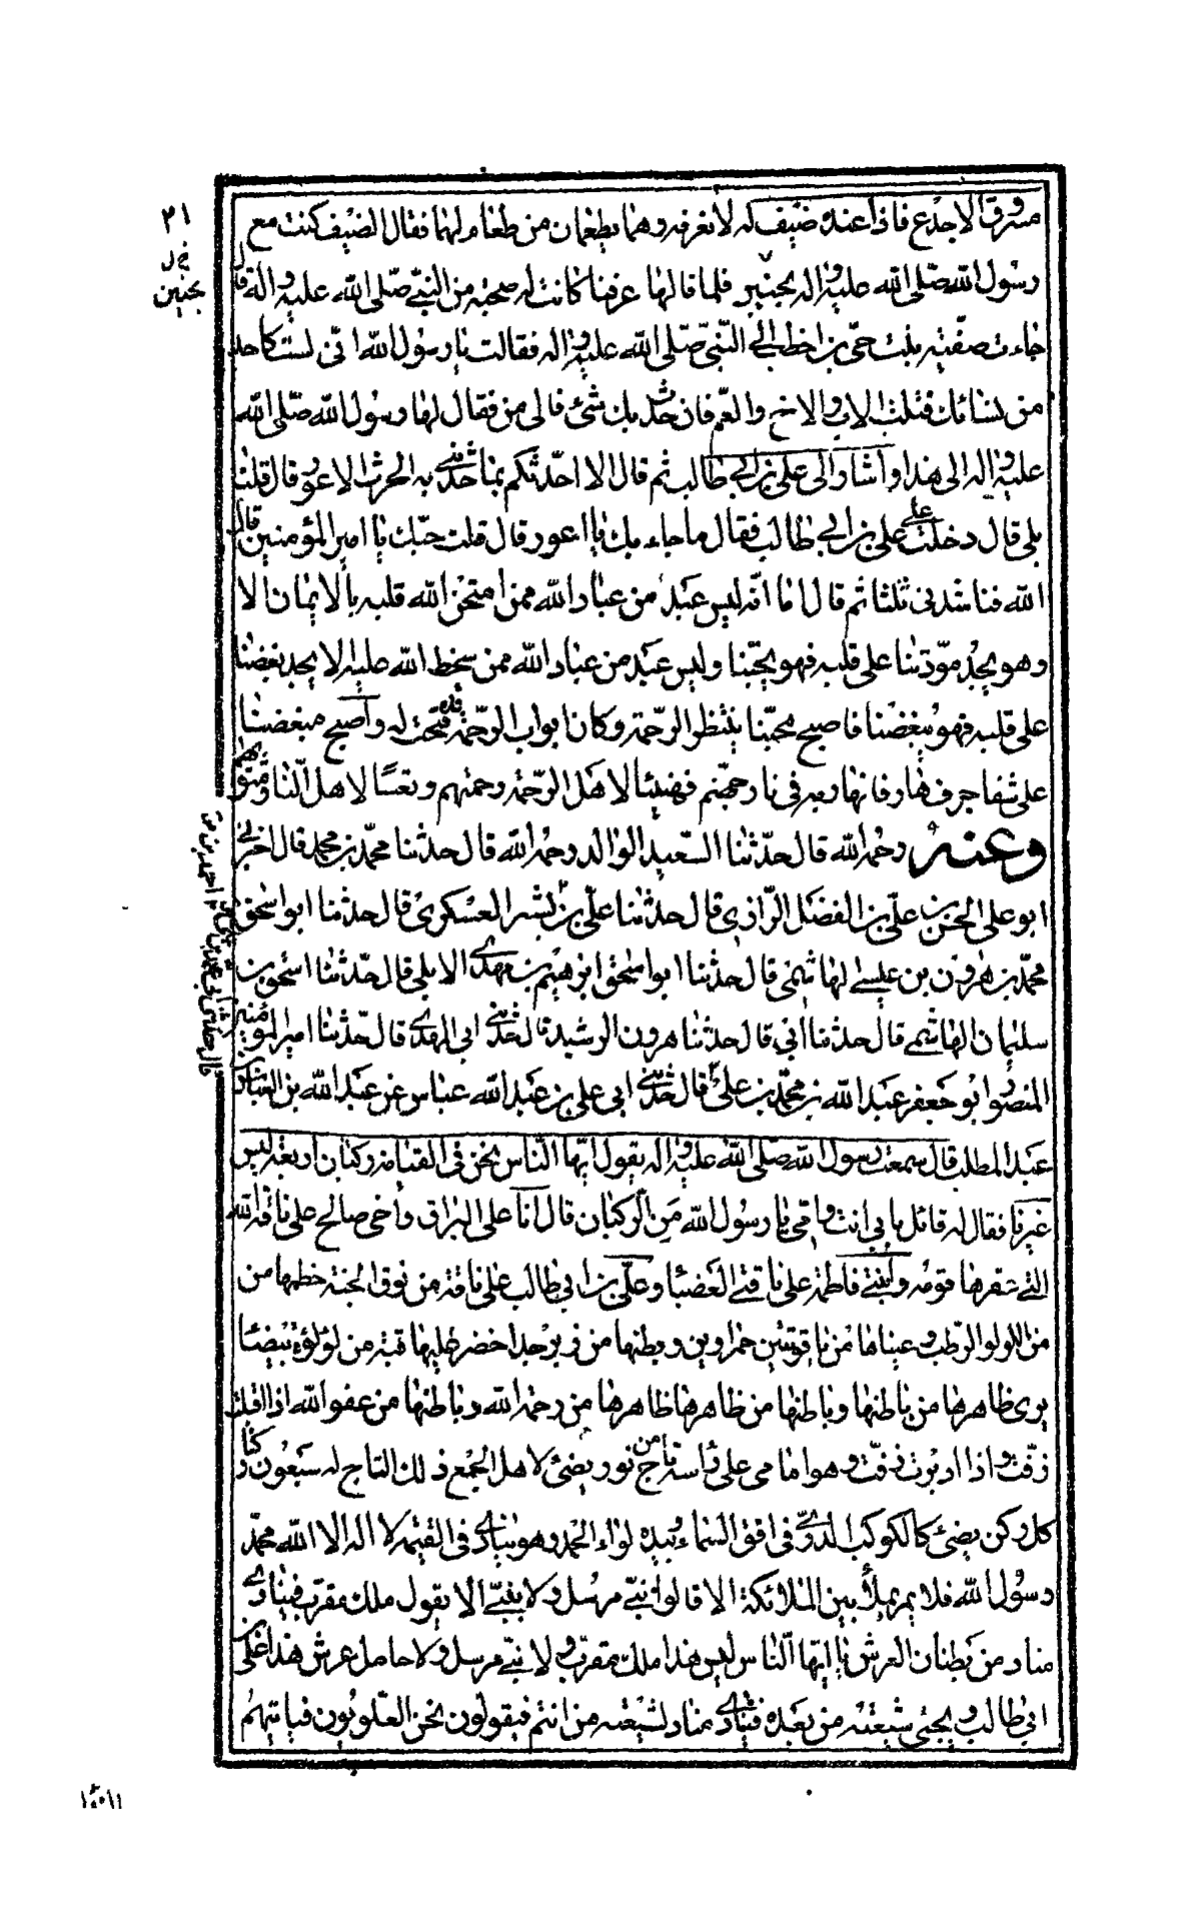 ٢١
خ ل
بحنين
مسروق الاجدع فاذا عنده ضيف له لا نعرفه وهما يطعمان من طعام لهما فقال الضيف كنت مع
رسول الله صلى الله عليه واله بحنين فلما قالها عرفنا كانت له صحبة من النبي صلى الله عليه واله قال
جاءت صفية بنت حي بن اخطب الى النبي صلى الله عليه واله فقالت يا رسول الله اني لست كاحد
من نسائك قتلت الاب والاخ والعم فان حدث بك شئ فالى من فقال لها رسول الله صلى الله
عليه واله الى هذا واشار الى علي بن ابي طالب ثم قال الا احدثكم بما حدثني به الحرث الاعور قال قلنا
بلى قال دخلت على علي بن ابي طالب فقال ما جاء بك يا اعور قال قلت حبك يا امير المؤمنين قال
الله فناشدني ثلثا ثم قال اما انه ليس عبد من عباد الله ممن امتحن الله قلبه بالايمان الا
وهو يجد مودتنا على قلبه فهو يحبنا وليس عبد من عباد الله ممن سخط الله عليه الا يجد بغضنا
على قلبه فهو يبغضنا فاصبح محبنا ينتظر الرحمة وكان ابواب الرحمة قد فتحت له واصبح مبغضنا
على شفا جرف هار فانهار به في نار جهنم فهنيئا لاهل الرحمة رحمتهم وتعسا لاهل النار مثويهم
وعنه رحمه الله قال حدثنا السعيد الوالد رحمه الله قال حدثنا محمد بن محمد قال اخبرني
ابو علي الحسن بن علي بن الفضل الرازي قال حدثنا علي بن بشر العسكري قال حدثنا ابو اسحق
محمد بن هرون بن عيسى الهاشمي قال حدثنا ابو اسحق ابرهيم بن مهدي الابلي قال حدثنا اسحق بن
سليمان الهاشمي قال حدثنا ابي قال حدثنا هرون الرشيد قال حدثني ابي المهدي قال حدثنا امير المؤمنين
المنصور ابو جعفر عبد الله بن محمد بن علي قال حدثني ابي علي بن عبد الله عباس عن عبد الله بن العباس بن
عبد المطلب قال سمعت رسول الله صلى الله عليه واله يقول ايها الناس نحن في القيامة ركبان اربعة ليس
غيرنا فقال له قائل بابي انت وامي يا رسول الله من الركبان قال انا على البراق واخي صالح على ناقة الله
التي عقرها قومه وابنتي فاطمة على ناقتي العضبا وعلي بن ابي طالب على ناقة من نوق الجنة خطمها من
من اللولو الرطب وعيناها من ياقوتتين حمراوين وبطنها من زبرجد اخضر عليها قبة من لؤلؤة بيضا
يرى ظاهرها من باطنها وباطنها من ظاهرها ظاهرها من رحمة الله وباطنها من عفو الله اذا اقبلت
زفت واذا ادبرت زفت وهو امامي على راسه تاج من نور يضئ لاهل الجمع ذلك التاج له سبعون ركنا
كل ركن يضئ كالكوكب الدري في افق السماء وبيده لواء الحمد وهو ينادي في القيمة لا اله الا الله محمد
رسول الله فلا يمر بملأ بين الملائكة الا قالوا نبي مرسل ولا بنبي الا يقول ملك مقرب فينادي
مناد من بطنان العرش يا ايها الناس ليس هذا ملك مقرب ولا نبي مرسل ولا حامل عرش هذا علي بن
ابي طالب ويجئ شيعته من بعده فينادي مناد لشيعته من انتم فيقولون نحن العلويون فياتيهم